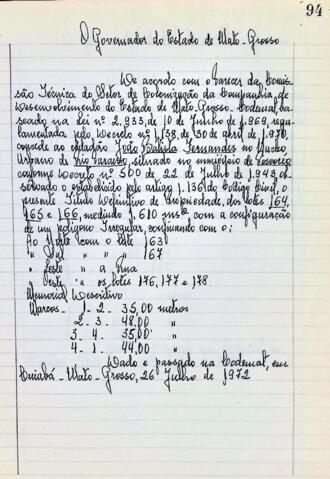 94
O Governador do Estado de Mato-Grosso
De acôrdo com o Parecer da Comis-
são Técnica do Setor de Colonização da Companhia, de
Desenvolvimento do Estado de Mato-Grosso-Codemat, ba-
seado na lei nº 2,933, de 10 de Junho de 1,969, regu-
lamentada pelo Decreto nº 1,138, de 30 de abril de 1,970,
concede ao cidadão João Batista Fernandes no Núcleo
Urbano de Rio, situado no município de
conforme Decreto nº 500 de 22 de Julho de 1,943, ob-
servado o estabelecido pelo artigo 1.136 do Código Civil, o
presente Título Definitivo de Propriedade, dos lotes 164,
165 e 166, medindo 1,610 ms² com a configuração
de um polígono Irregular, confinando com o:
Ao Norte com o lote 163
" Sul " " " 167
" Leste " a Rua
" Oeste " os lotes 176, 177 e 178
Memorial Descritivo
Marcos - 1 - 2 - 35,00 metros
2 - 3 - 48,00 "
3 - 4 - 35,00 "
4 - 1 - 44,00 "
Dado e passado na Codemat, em
Cuiabá - Mato - Grosso, 26 Julho de 1972